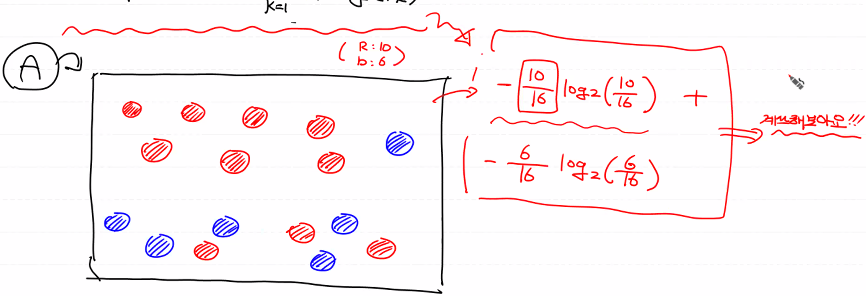 K=1
(R:10
b:6)
A
- 10/16 log₂(10/16) +
- 6/16 log₂(6/16)
계산해보아요!!!